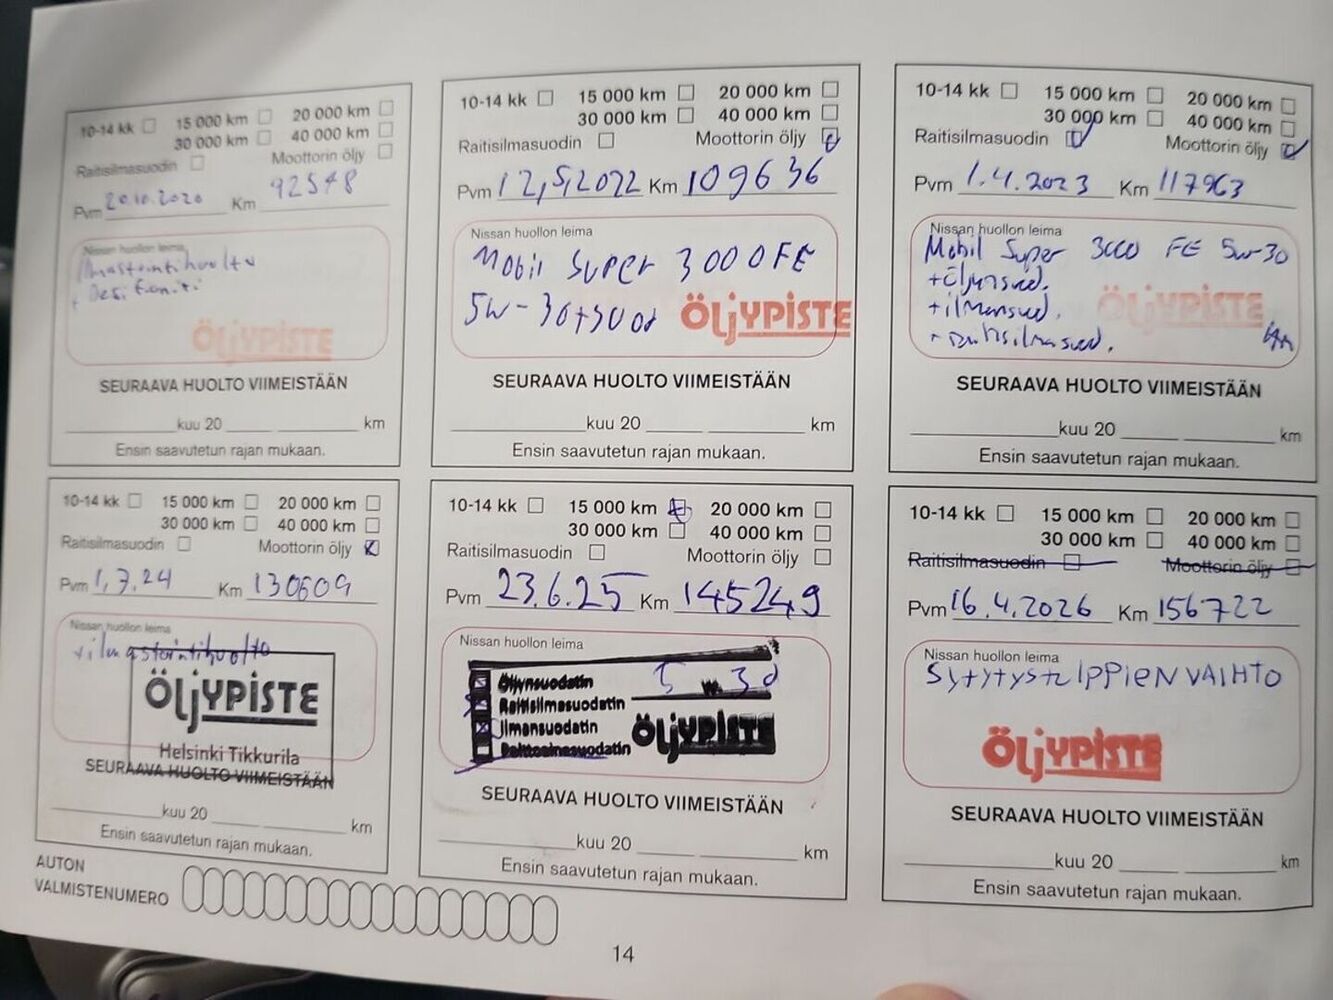 10-14 kk 15 000 km 20 000 km
30 000 km 40 000 km
Raitisilmasuodin Moottorin öljy
Pvm 20.10.2020 Km 92548
Nissan huollon leima
Ilmastointihuolto
+ Desifionti
ÖljYPiSTE
SEURAAVA HUOLTO VIIMEISTÄÄN
kuu 20 km
Ensin saavutetun rajan mukaan.
10-14 kk 15 000 km 20 000 km
30 000 km 40 000 km
Raitisilmasuodin Moottorin öljy
Pvm 12,5,2022 Km 109636
Nissan huollon leima
Mobil Super 3000FE
5W-30+SUOd
ÖljYPiSTE
SEURAAVA HUOLTO VIIMEISTÄÄN
kuu 20 km
Ensin saavutetun rajan mukaan.
10-14 kk 15 000 km 20 000 km
30 000 km 40 000 km
Raitisilmasuodin Moottorin öljy
Pvm 1.4.2023 Km 117963
Nissan huollon leima
Mobil Super 3000 FE 5w-30
+öljynsuod.
+ilmansuod.
+raitisilmasuod.
ÖljYPiSTE
SEURAAVA HUOLTO VIIMEISTÄÄN
kuu 20 km
Ensin saavutetun rajan mukaan.
10-14 kk 15 000 km 20 000 km
30 000 km 40 000 km
Raitisilmasuodin Moottorin öljy
Pvm 1,7,24 Km 130609
Nissan huollon leima
+ilmastointihuolto
ÖljYPiSTE
Helsinki Tikkurila
SEURAAVA HUOLTO VIIMEISTÄÄN
kuu 20 km
Ensin saavutetun rajan mukaan.
10-14 kk 15 000 km 20 000 km
30 000 km 40 000 km
Raitisilmasuodin Moottorin öljy
Pvm 23.6.25 Km 145249
Nissan huollon leima
Öljynsuodatin 5 w 30
Raitisilmasuodatin
Ilmansuodatin
Polttoainesuodatin
ÖljYPiSTE
SEURAAVA HUOLTO VIIMEISTÄÄN
kuu 20 km
Ensin saavutetun rajan mukaan.
10-14 kk 15 000 km 20 000 km
30 000 km 40 000 km
Raitisilmasuodin Moottorin öljy
Pvm 16.4.2026 Km 156722
Nissan huollon leima
SytytystulPPiEN VAIHTO
ÖljYPiSTE
SEURAAVA HUOLTO VIIMEISTÄÄN
kuu 20 km
Ensin saavutetun rajan mukaan.
AUTON
VALMISTENUMERO
14